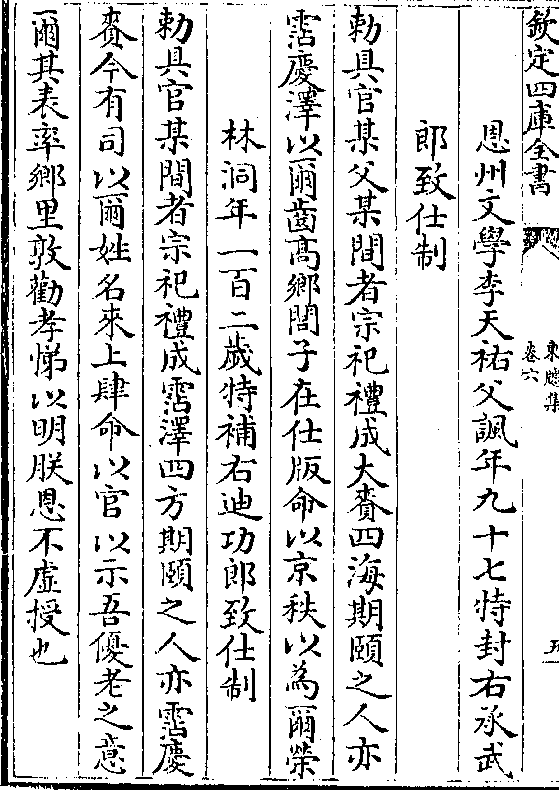 欽定四庫全書
東牕集
卷六
五
恩州文學李天祐父諷年九十七特封右承武
郎致仕制
勅具官某父某間者宗祀禮成大賚四海期頤之人亦
霑慶澤以爾齒髙鄉閭子在仕版命以京秩以為爾榮
林洞年一百二歲特補右迪功郎致仕制
勅具官某間者宗祀禮成霑澤四方期頤之人亦霑慶
賚今有司以爾姓名來上肆命以官以示吾優老之意
爾其表率鄉里敦勸孝悌以明朕恩不虛授也